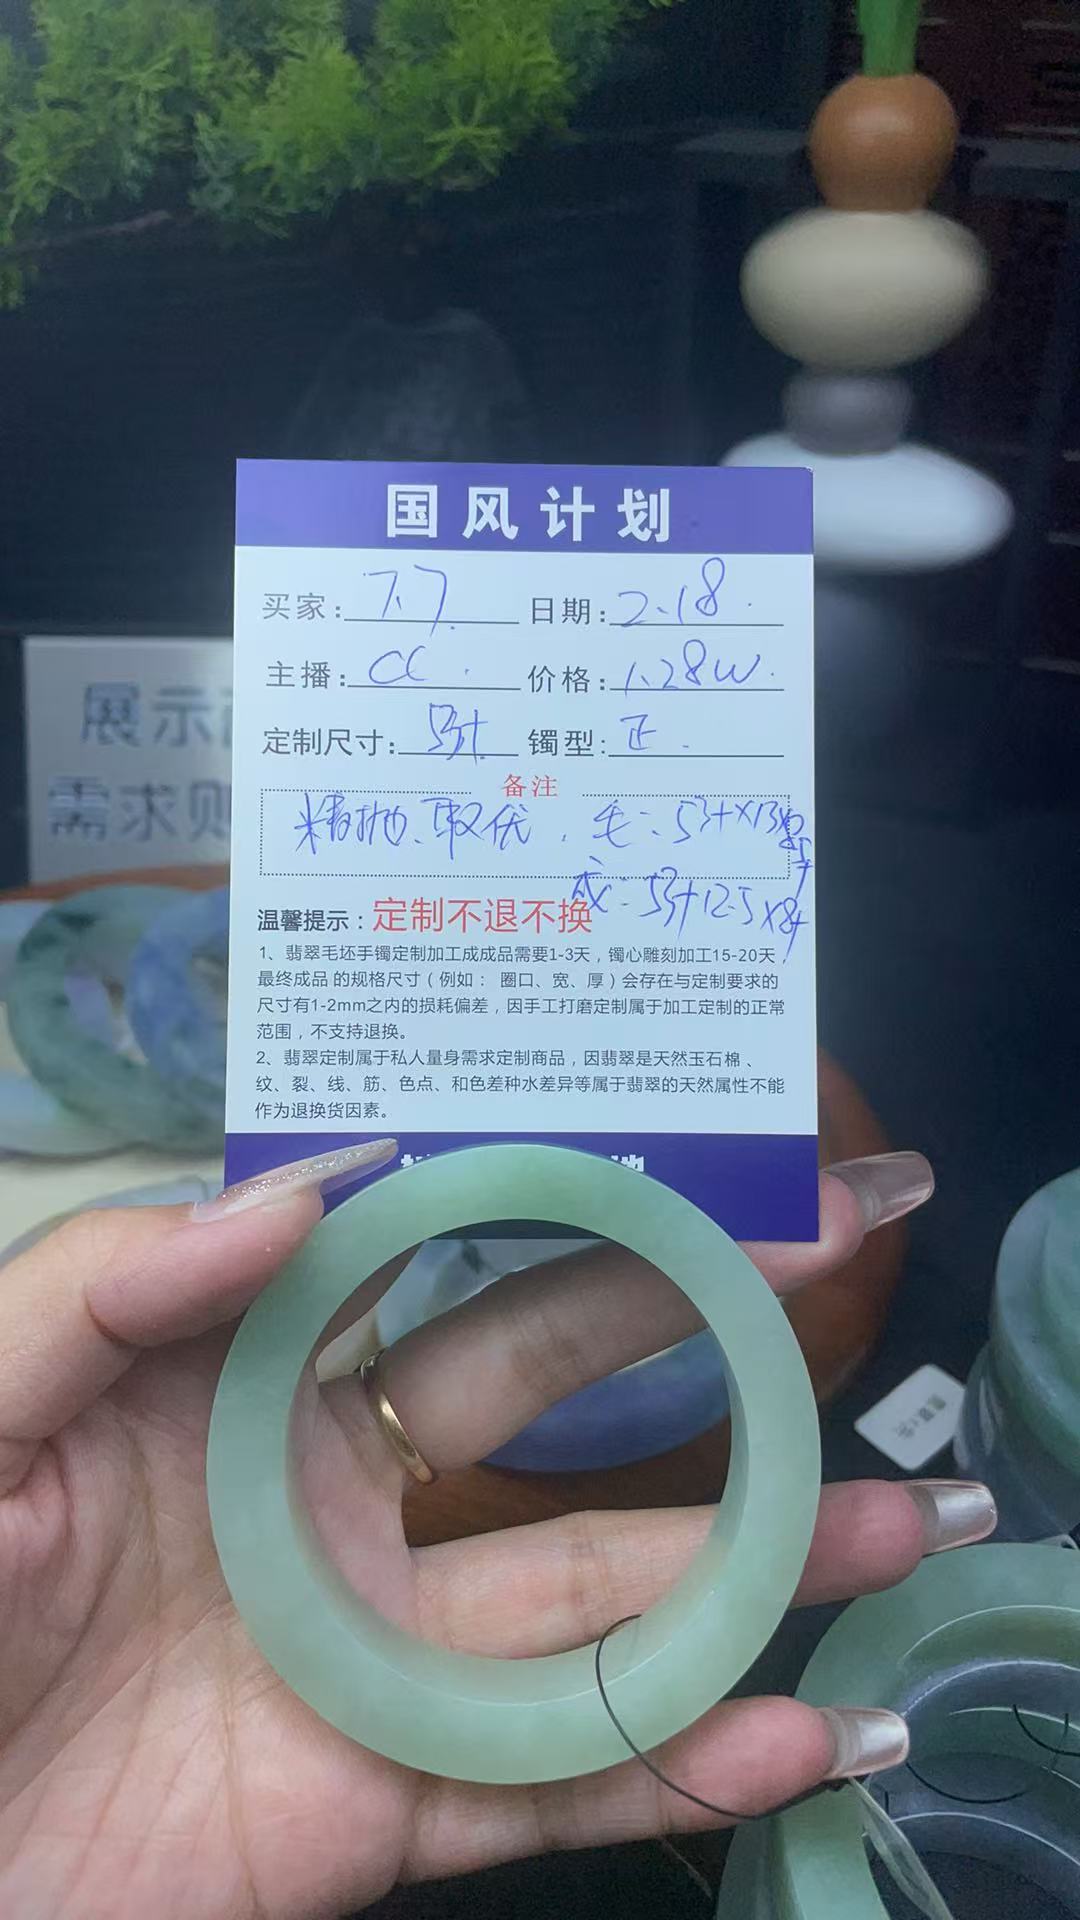 国风计划
买家: 7.7. 日期: 2.18.
主播: CC. 价格: 1.28W.
定制尺寸: 53+ 镯型: 正.
备注
精抛、取优. 毛: 53+×13×
成: 53+12.5×8+
温馨提示：定制不退不换
1、翡翠毛坯手镯定制加工成成品需要1-3天，镯心雕刻加工15-20天，
最终成品 的规格尺寸（例如： 圈口、宽、厚）会存在与定制要求的
尺寸有1-2mm之内的损耗偏差，因手工打磨定制属于加工定制的正常
范围，不支持退换。
2、翡翠定制属于私人量身需求定制商品，因翡翠是天然玉石棉、
纹、裂、线、筋、色点、和色差种水差异等属于翡翠的天然属性不能
作为退换货因素。
展示
需求则